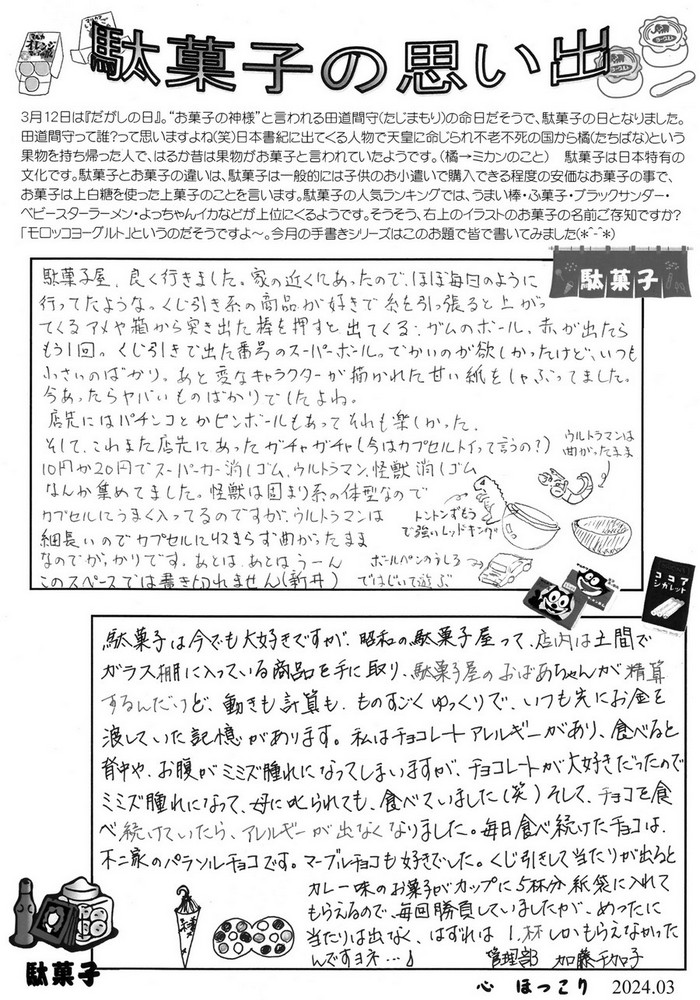 駄菓子の思い出
3月12日は『だがしの日』。“お菓子の神様”と言われる田道間守(たじまもり)の命日だそうで、駄菓子の日となりました。
田道間守って誰?って思いますよね(笑)日本書紀に出てくる人物で天皇に命じられ不老不死の国から橘(たちばな)という
果物を持ち帰った人で、はるか昔は果物がお菓子と言われていたようです。(橘→ミカンのこと)　駄菓子は日本特有の
文化です。駄菓子とお菓子の違いは、駄菓子は一般的には子供のお小遣いで購入できる程度の安価なお菓子の事で、
お菓子は上白糖を使った上菓子のことを言います。駄菓子の人気ランキングでは、うまい棒・ふ菓子・ブラックサンダー・
ベビースターラーメン・よっちゃんイカなどが上位にくるようです。そうそう、右上のイラストのお菓子の名前ご存知ですか?
「モロッコヨーグルト」というのだそうですよ～。今月の手書きシリーズはこのお題で皆で書いてみました(*^-^*)
駄菓子
駄菓子屋、良く行きました。家の近くにあったので、ほぼ毎日のように
行ってたような。くじ引き系の商品が好きで糸を引っ張ると上がっ
てくるアメや箱から突き出た棒を押すと出てくる:ガムのボール、赤が出たら
もう1回。くじ引きで出た番号のスーパーボール。でかいのが欲しかったけど、いつも
小さいのばかり。あと変なキャラクターが描かれた甘い紙をしゃぶってました。
今あったらヤバいものばかりでしたよね。
店先にはパチンコとかピンボールもあってそれも楽しかった。
そして、これまた店先にあったガチャガチャ(今はカプセルトイって言うの?)
10円か20円でスーパーカー消しゴム、ウルトラマン、怪獣消しゴム
なんか集めてました。怪獣は固まり系の体型なので
カプセルにうまく入ってるのですが、ウルトラマンは
細長いのでカプセルに収まらず曲がったまま
なのでがっかりです。あとは、あとはうーん
このスペースでは書き切れません(新井)
ウルトラマンは
曲がったまま
トントンずもう
で強いレッドキング
ボールペンのうしろ
ではじいて遊ぶ
ココア
シガレット
駄菓子は今でも大好きですが、昭和の駄菓子屋って、店内は土間で
ガラス棚に入っている商品を手に取り、駄菓子屋のおばあちゃんが精算
するんだけど、動きも計算も、ものすごくゆっくりで、いつも先にお金を
渡していた記憶があります。私はチョコレートアレルギーがあり、食べると
背中や、お腹がミミズ腫れになってしまいますが、チョコレートが大好きだったので
ミミズ腫れになって、母に叱られても、食べていました(笑)そして、チョコを食
べ続けていたら、アレルギーが出なくなりました。毎日食べ続けたチョコは、
不二家のパラソルチョコです。マーブルチョコも好きでした。くじ引きして当たりが出ると
カレー味のお菓子がカップに5杯分紙袋に入れて
もらえるので、毎回勝負していましたが、めったに
当たりは出なく、はずれは1杯しかもらえなかった
んですヨネ…♪　管理部　加藤千加子
駄菓子
心　ほっこり　2024.03